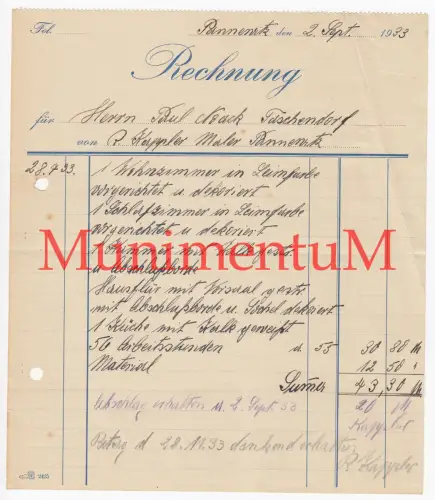 Fol.
Pannewitz den 2. Sept. 1933
Rechnung
für Herrn Paul Noack Taschendorf
von P. Kappler Maler Pannewitz
28.7.33. 1 Wohnzimmer in Leimfarbe
vorgerichtet u dekoriert
1 Schlafzimmer in Leimfarbe
vorgerichtet u dekoriert
mit Kalk gestr.
u Abschlußborde
MunimentuM
Hausflur mit gestr.
mit Abschlußborde u. Sockel dekoriert
1 Küche mit Kalk geweißt
56 Arbeitsstunden a. 55 30 80 M
Material 12 50 "
Summe 43,30 M
Abschlag erhalten d. 2. Sept 33 20 M
Kappler
Betrag d 28.11.33 dankend erhalten
P. Kappler